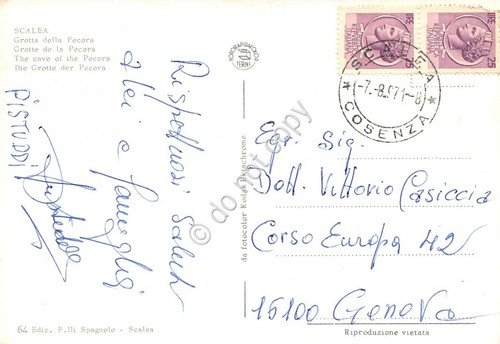 SCALEA
Grotta della Pecora
Grotte de la Pecora
The cave of the Pecora
Die Grotte der Pecora
ROTOALFAGRAFICA
TERNI
SCALEA
-7.-8.1971-8
* COSENZA *
Rispettosi saluti
a lei e famiglia
PISTUDDI
Egr. Sig.
Dott. Vittorio Casiccia
Corso Europa 42
15100 Genova
da fotocolor Kodak Ektachrome
do not copy
64 Ediz. F.lli Spagnolo - Scalea
Riproduzione vietata